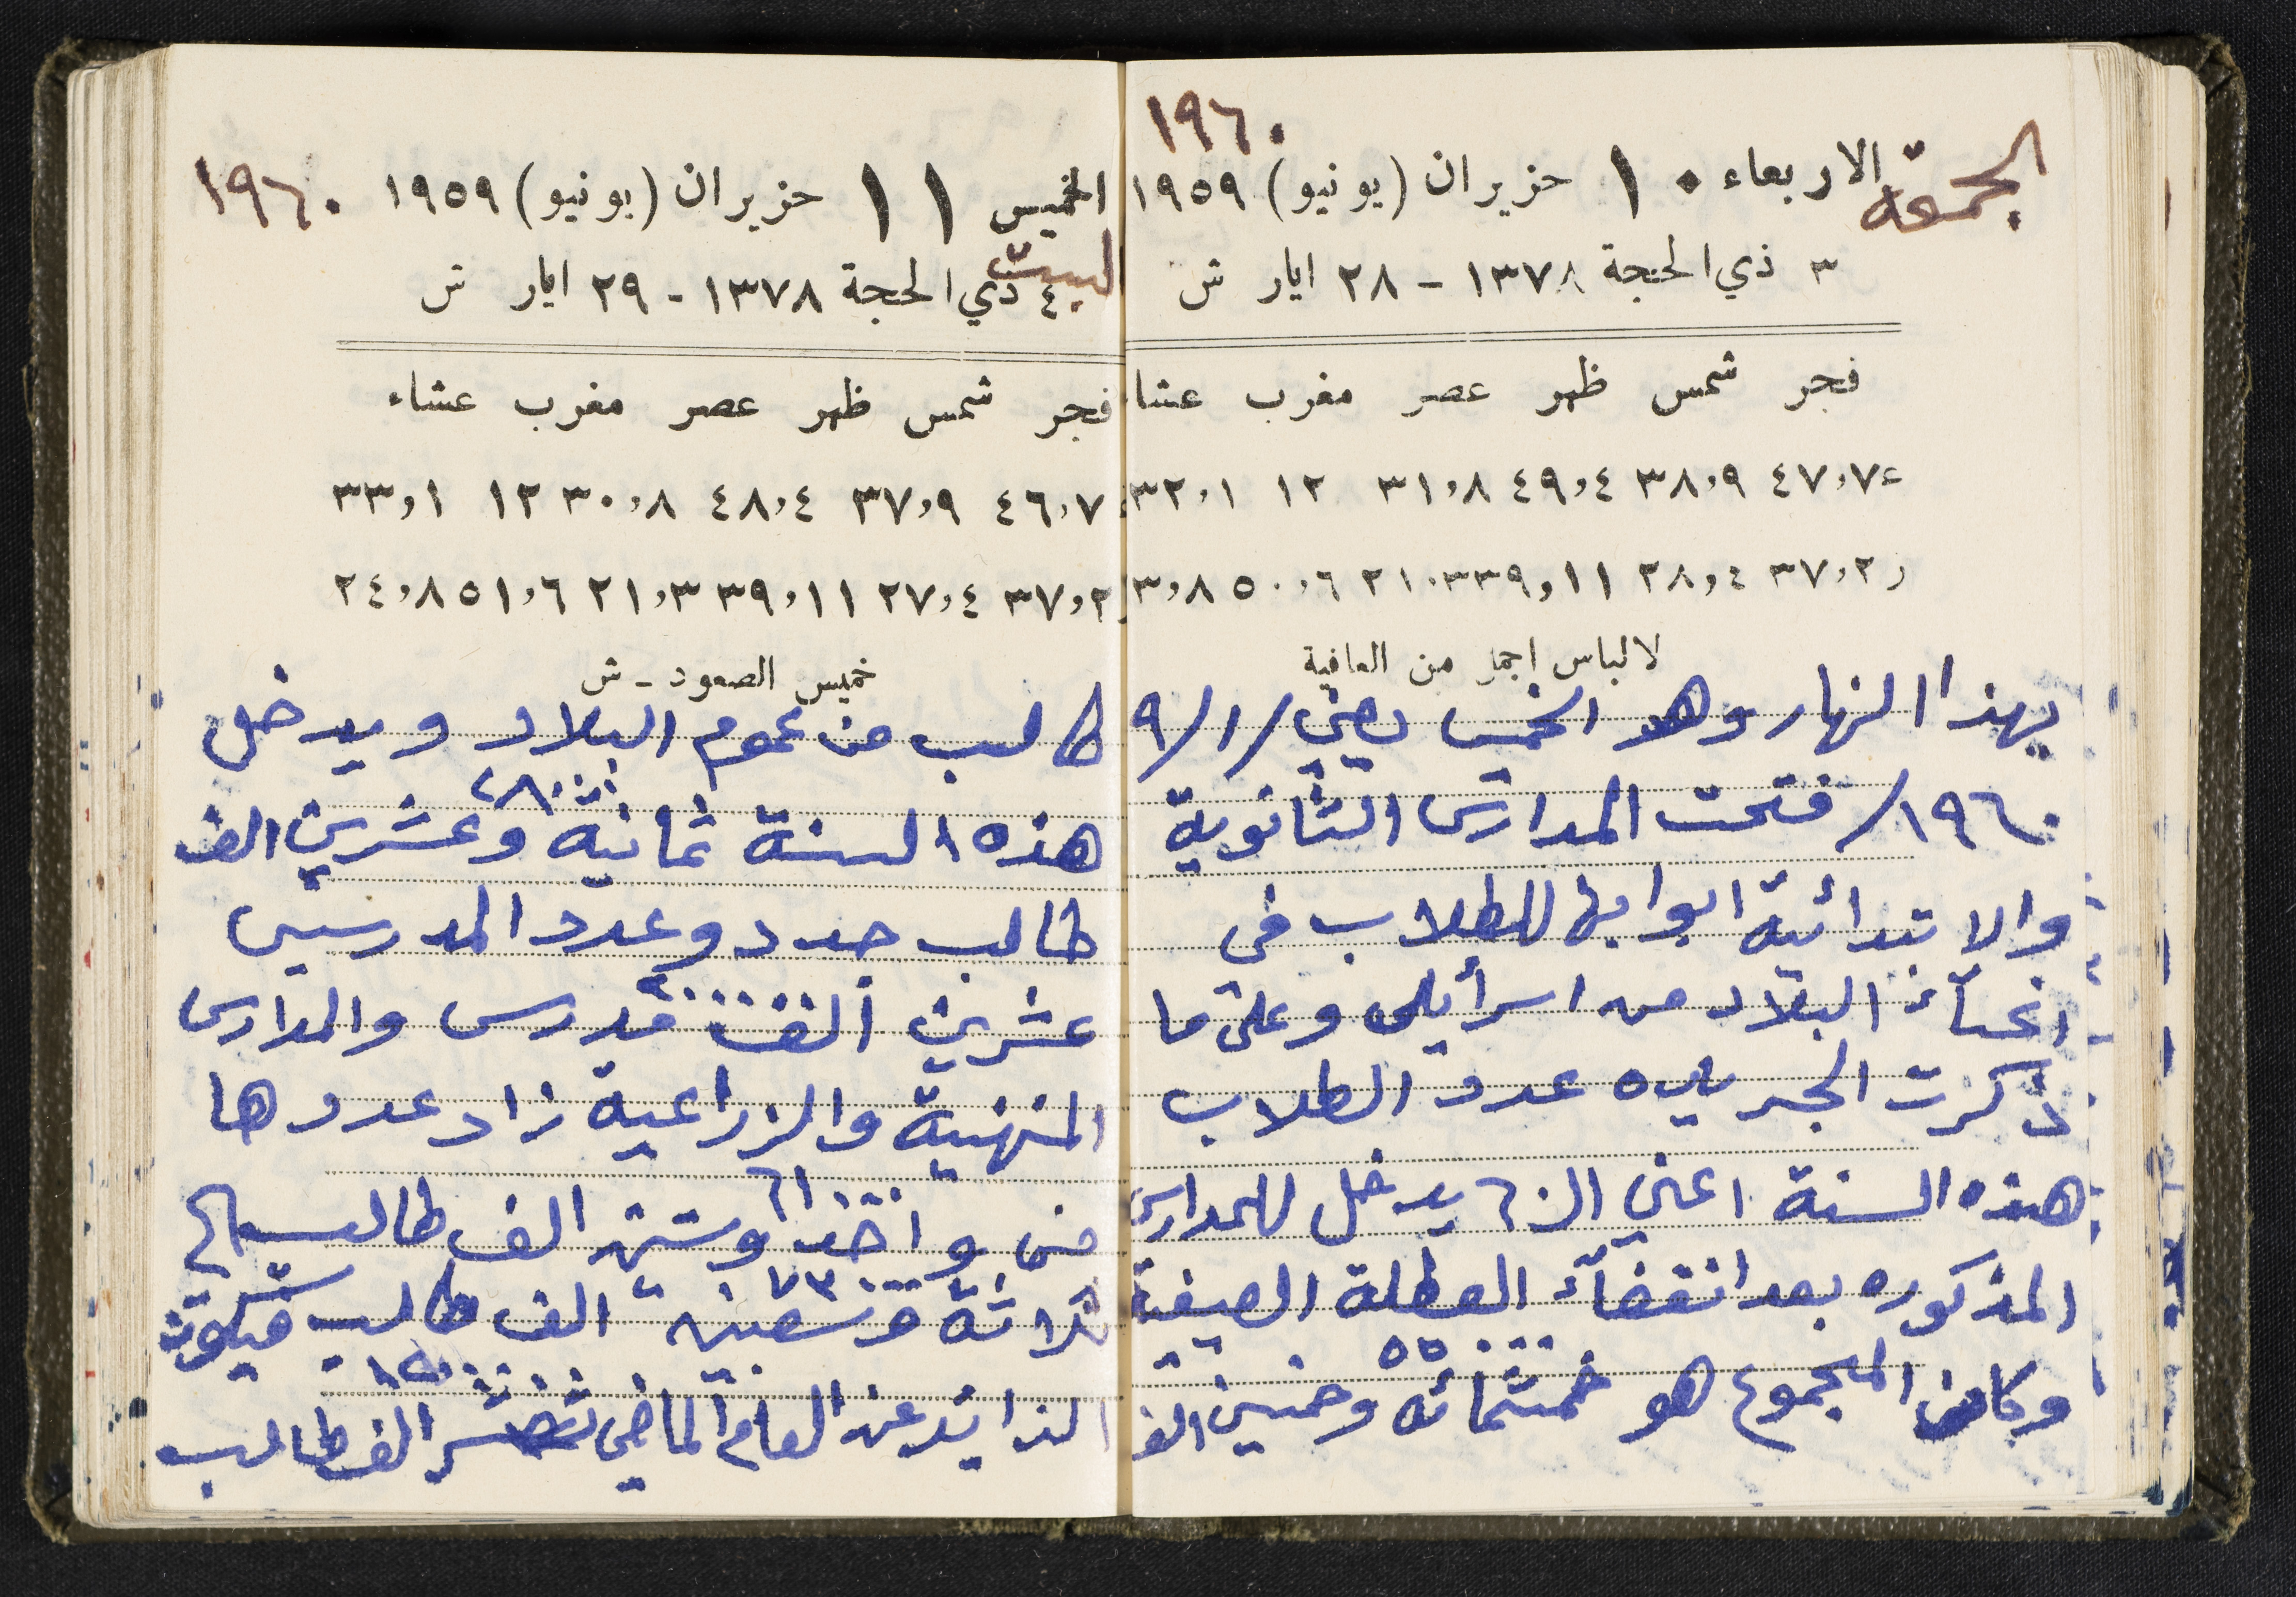 ١٩٦٠
الجمعة الاربعاء ١٠ حزيران (يونيو) ١٩٥٩
٣ ذي الحجة ١٣٧٨ - ٢٨ ايار ش
فجر شمس ظهر عصر مغرب عشا
ع ٤٧،٧ ٣٨،٩ ٤٩،٤ ٣١،٨ ١٢ ٣٢،١
ز ٣٧،٢ ٢٨،٤ ٣٩،١١ ٢١،٣ ٥٠،٦ ٣،٨
لا لباس اجمل من العافية
بهذا النهار وهو الخميس يعني /٩/١
١٩٦٠/ فتحت المدارس الثانوية
والابتدائية ابوابها للطلاب في
انحآء البلاد من اسرأيل وعلى ما
ذكرت الجريده عدد الطلاب
هذه السنة اعني ال٦٠ يدخل للمدارس
المذكوره بعد انقضآء العطلة الصيفية
٥٥٠٠٠٠
وكان المجموع هو خمسمائه وخمسين الف
الخميس ١١ حزيران (يونيو) ١٩٥٩ ١٩٦٠
السبت
٤ ذي الحجة ١٣٧٨ - ٢٩ ايار ش
فجر شمس ظهر عصر مغرب عشاء
٤٦،٧ ٣٧،٩ ٤٨،٤ ٣٠،٨ ١٢ ٣٣،١
٣٧،٢ ٢٧،٤ ٣٩،١١ ٢١،٣ ٥١،٦ ٢٤،٨
خميس الصعود - ش
طالب من عموم البلاد ويدخل
٢٨٠٠٠
هذه السنة ثمانية وعشرين الف
طالب جدد وعدد المدرسين
٢٠٠٠٠
عشرين ألف مدرس والمدارس
المهنية والزراعية زاد عددها
٦١٠٠٠
من واحد وستين الف طالب الى
٧٣٠٠٠
ثلاثة وسبعين الف طالب فيكون
١٢٠٠٠
الزايد عن العام الماضي الف طالب